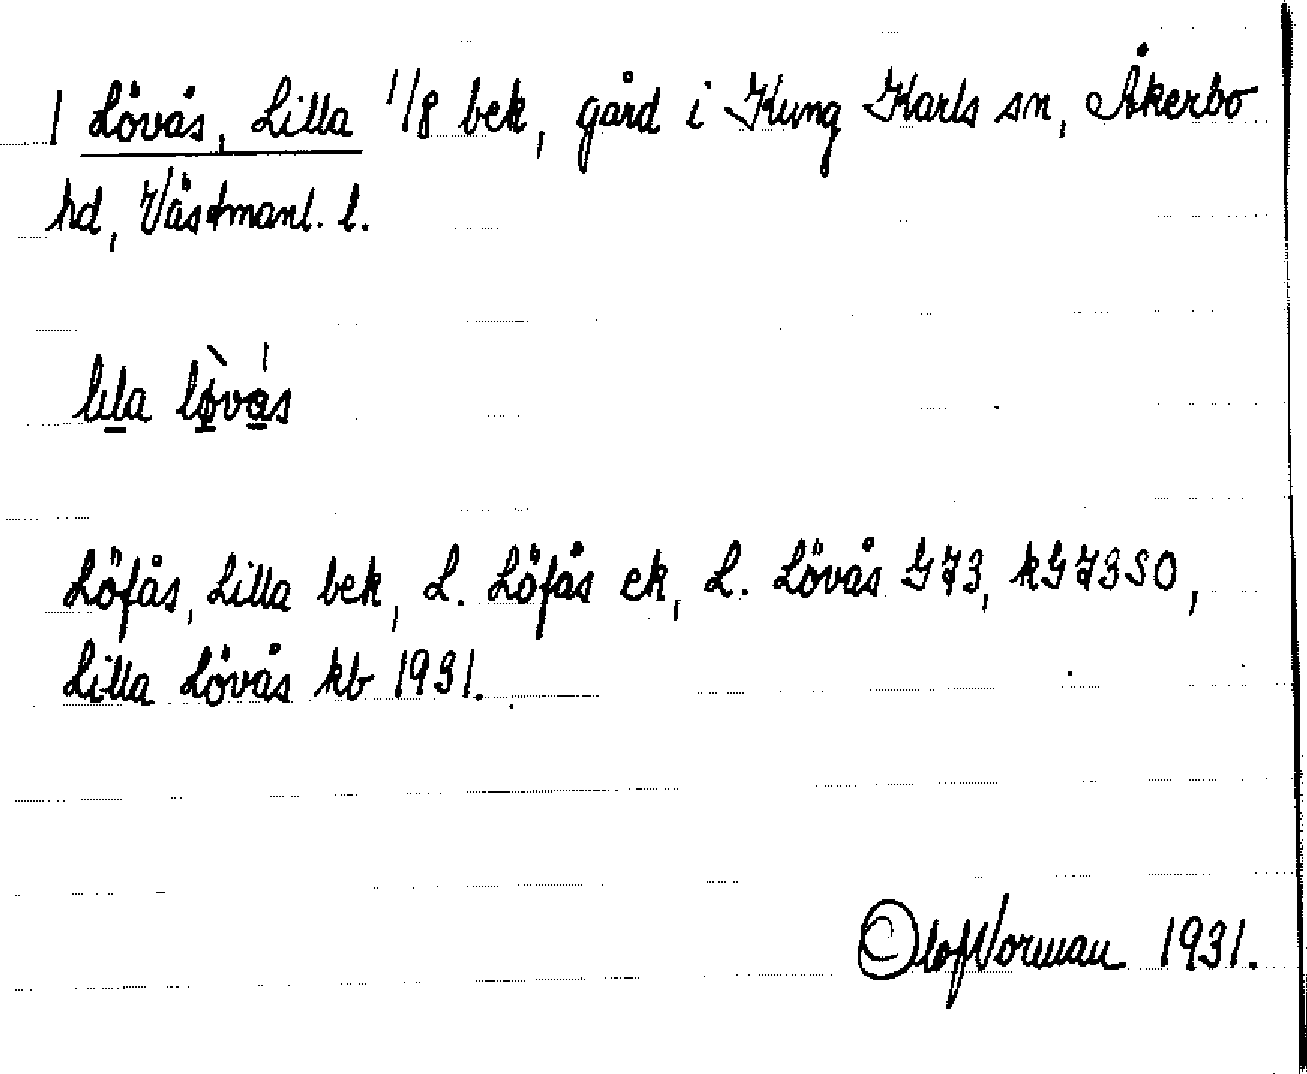 1 Lövås, Lilla 1/8 bek, gård i Kung Karls sn, Åkerbo
hd, Västmanl. l.
lịla lø̀vás
Löfås, Lilla bek, L. Löfås ek, L. Lövås GJ3, kGJ3SO,
Lilla Lövås kb 1931.
Olof Norman 1931.